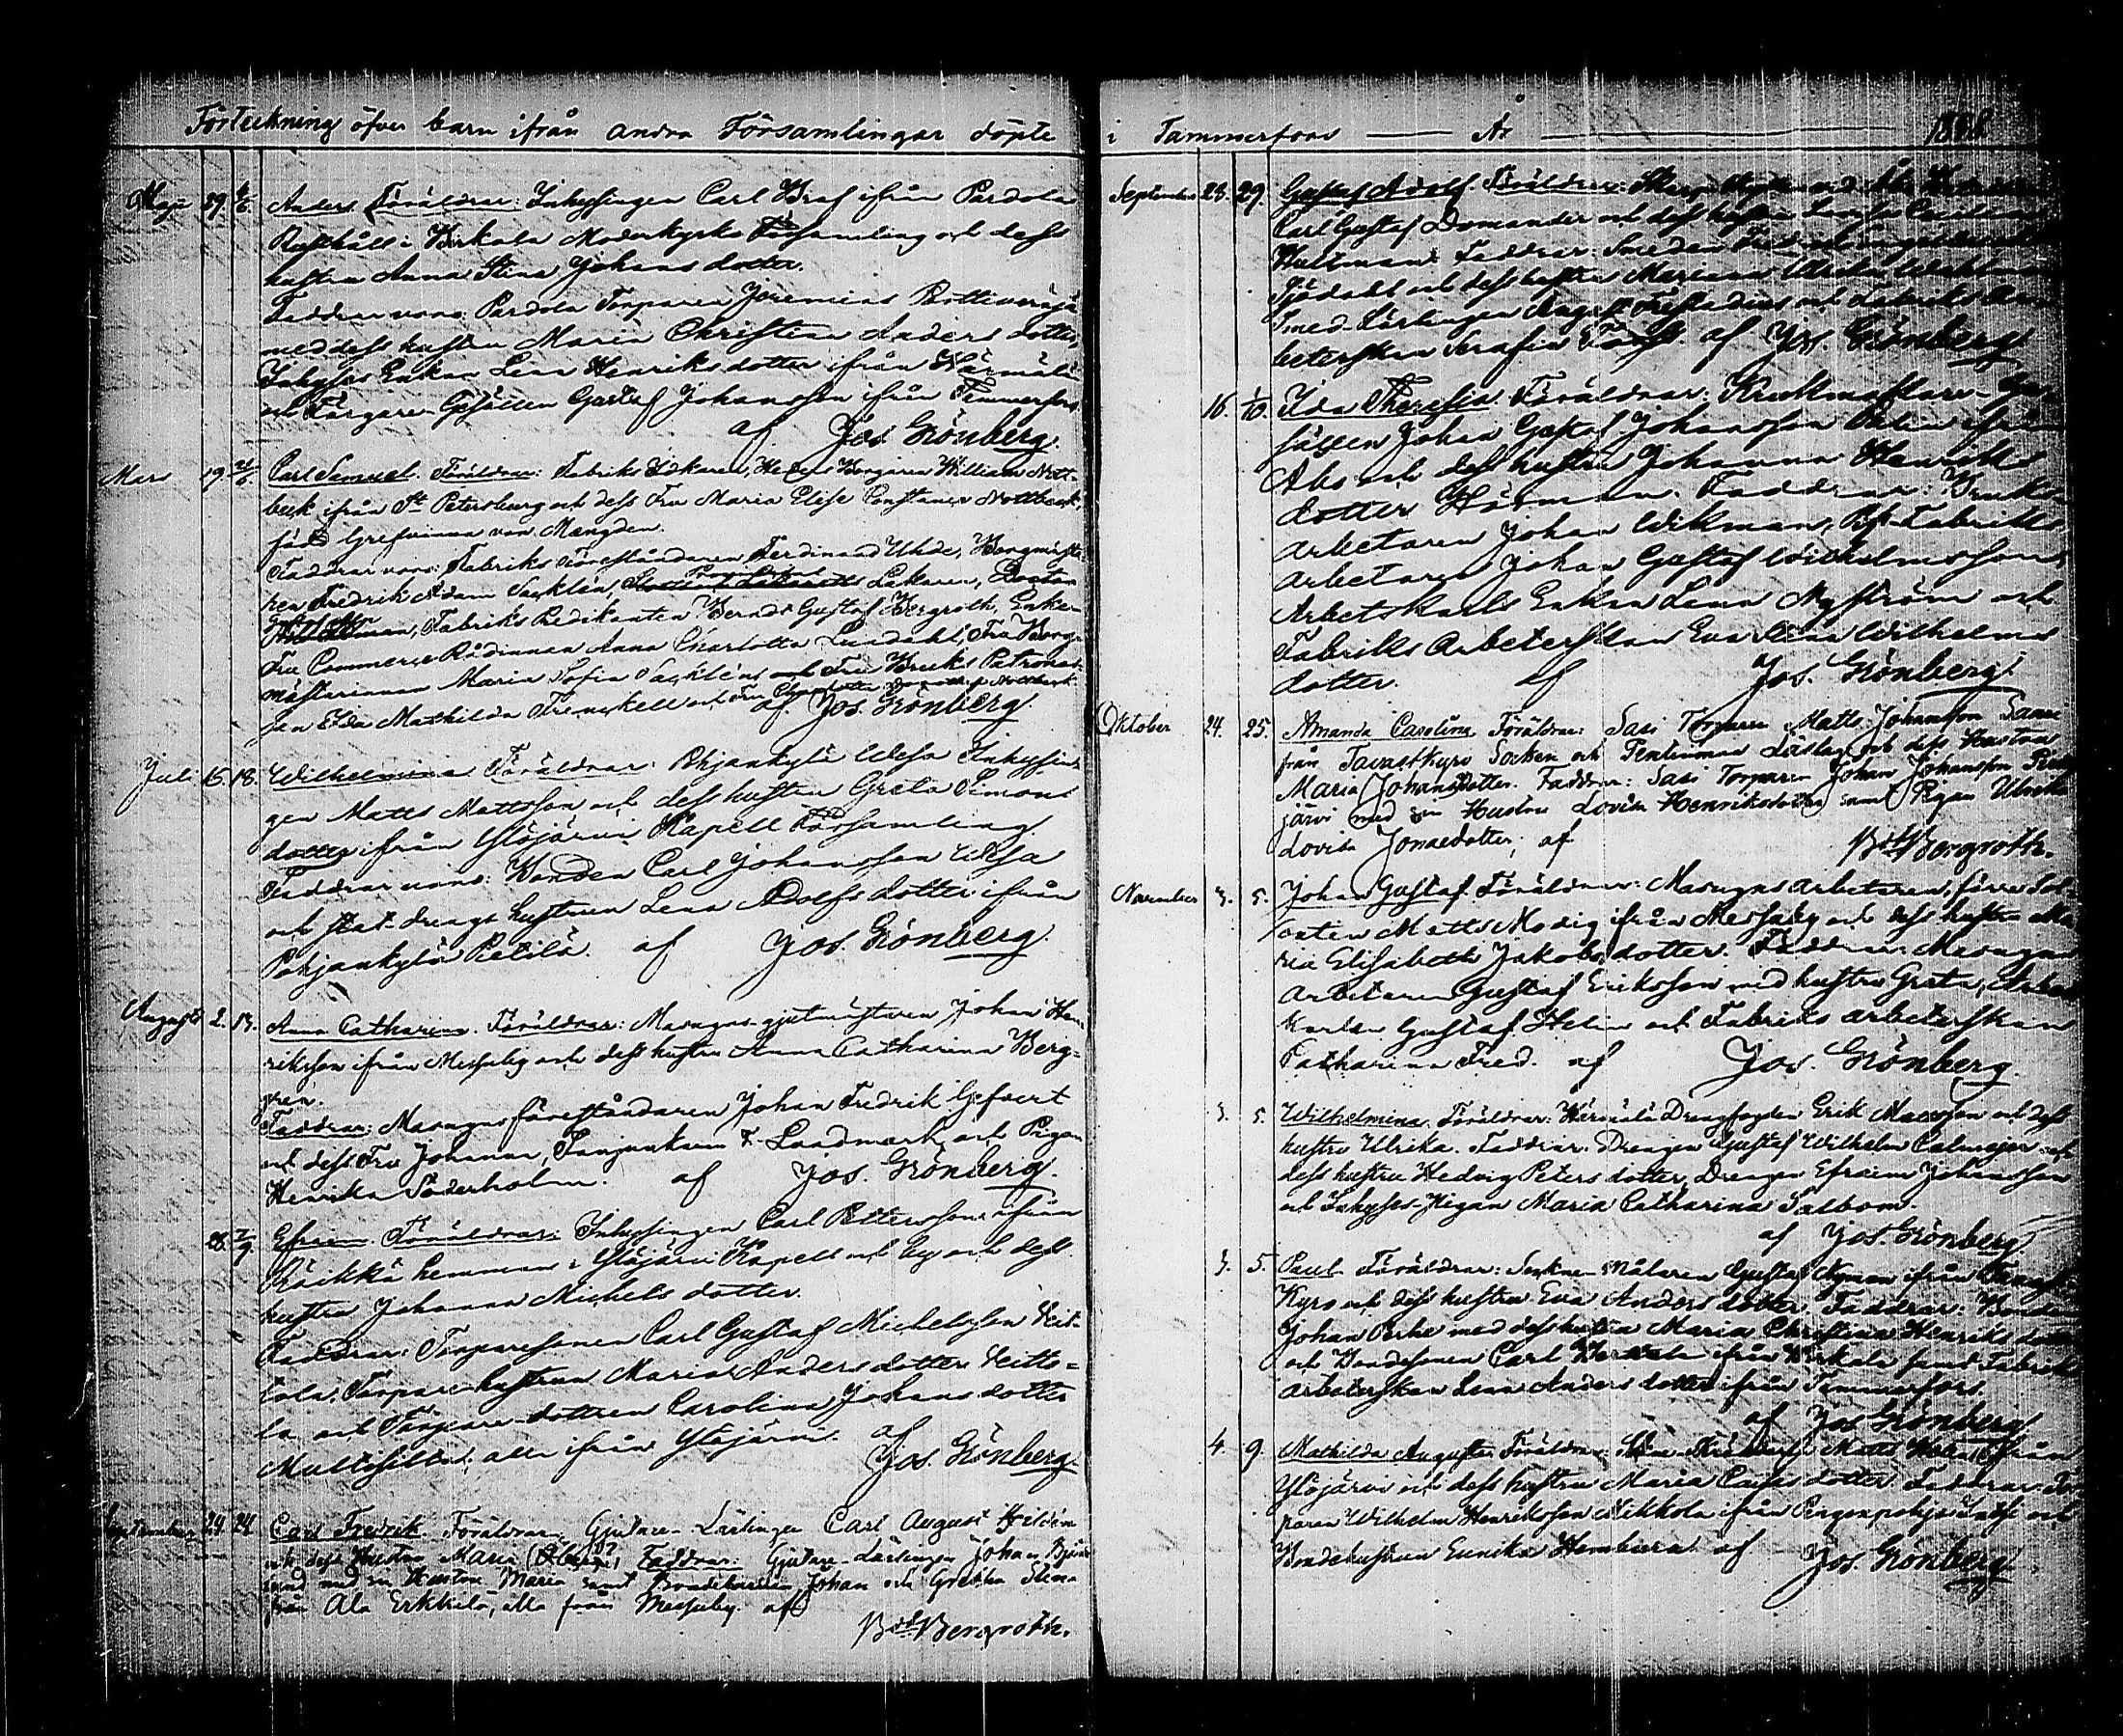 Förteckning öfver barn ifrån andra Församlingar döpte i Tammerfors — År — 18
Maji 29. 6/6. Anders. Föräldrar: Inhysingen Carl Graf ifrån Pardola
Rusthåll i Birkala Moderkyrko Församling och dess
hustru Anna Stina Johans dotter.
Faddrar voro: Pardola Torparen Jeremias
med dess hustru Maria Christina Anders dotter,
Inhyses Enkan Lena Henriks dotter ifrån Härmälä
och Färgare Gesällen Gustaf Johansson ifrån Tammerfors.
af Jos. Grönberg.
Mars 19. Carl Samuel. Föräldrar: Fabriks Idkaren, Heders Borgaren William Nott-
beck ifrån St Petersburg och dess Fru Maria Elise Constance Nottbeck,
född Grefvinna von Mengden.
Faddrar voro: Fabriks Föreståndaren Ferdinand Uhde, Borgmästa-
ren Fredrik Adam Sacklén, Läkaren, Doctor
Fabriks Predikanten Berndt Gustaf Bergroth, Enke-
Fru Commerce Rådinnan Anna Charlotta Lindahl, Fru Borg-
mästarinnan Maria Sofia Sackléns och Fru Bruks Patrones-
san Ida Mathilda Frenckell och Fru Charlotta Nottbeck
af Jos. Grönberg.
Juli 15. 18. Wilhelmina Föräldrar: Pohjankylä Uksa Inhysin-
gen Matts Mattsson och dess hustru Greta Simons
dotter ifrån Ylöjärvi Kapell Församling.
Faddrar voro: Bonden Carl Johansson Uksa
och Stat-drengs hustrun Lena Adolfs dotter ifrån
Pohjankylä Pietilä. af Jos. Grönberg.
Augusti 2. 13. Anna Catharina. Föräldrar: Masugns-gjutmästaren Johan Hen-
riksson ifrån Messuby och dess hustru Anna Catharina Berg-
gren.
Faddrar: Masugns föreståndaren Johan Fredrik Gefvert
och dess Fru Johanna, F. Landmark, och Pigan
Henrika Söderholm. af Jos. Grönberg.
28. 7/9. Efraim. Föräldrar: Inhysingen Carl Pettersson ifrån
Räikkä hemman i Ylöjärvi Kapell och by och dess
hustru Johanna Michels dotter.
Faddrar: Torparesonen Carl Gustaf Michelsson Keit-
tola, Torpare-hustrun Maria Anders dotter Keitto-
la och Torpare-dottren Carolina Johans dotter
Multisilta; alla ifrån Ylöjärvi. af
Jos. Grönberg.
September 24. Carl Fredrik Föräldrar: Gjutare-Lärlingen Carl August Hildén
och dess Hustru Maria (Oberg?) Faddrar: Gjutare-Lärlingen Johan Björk-
lund med sin Hustru Maria samt Johan och Gretha Stina
från Ala Erkkilä, alla från Messuby. af
Bdt Bergroth.
September 28. 29. Gustaf Adolf. Föräldrar:
Carl Gustaf Domander och dess hustru Lovisa
Hultman: Faddrar: Smeden Fredrik
Sjödahl och dess hustru Mariana Ulrika
Smed-Lärlingen August och Fabriks Ar-
beterskan Serafia af Jos. Grönberg.
16. 1/10. Ida Theresia. Föräldrar: Krukmakare-Ge-
sällen Johan Gustaf Johansson ifrån
Åbo och dess hustru Johanna Henriks
dotter Hörman. Faddrar: Bruks-
arbetaren Johan Wikman, Fabriks
arbetaren Johan Gustaf Wilhelmsson,
Arbetskarls Enkan Lena Nyström och
Fabriks Arbeterskan Eva Stina Wilhelms
dotter. af Jos. Grönberg.
Oktober 24. 25. Amanda Carolina Föräldrar: Sasi Torparen Matts Johansson
från Tavastkyro Socken och dess Hustru
Maria Johansdotter. Faddrar: Sasi Torparen Johan Johansson
järvi med sin Hustru Lovisa Henriksdotter samt Pigan Ulrika
Lovisa Jonaedotter; af
Bdt Bergroth.
November 3. 5. Johan Gustaf. Föräldrar: Masugns arbetaren, förre Sol-
daten Matts Modig ifrån Messuby och dess hustru Ma-
ria Elisabeth Jakobs dotter. Faddrar: Masugns
arbetaren Gustaf Eriksson med hustru Greta, Arbets
karlen Gustaf Helin och Fabriks arbeterskan
Catharina Fred. af Jos. Grönberg.
3. 5. Wilhelmina. Föräldrar: Härmälä Drengfogden Erik Mattsson och dess
hustru Ulrika. Faddrar: Drengen Gustaf Wilhelm och
dess hustru Hedvig Peters dotter, Drengen Efraim Johansson
och Inhyses-Pigan Maria Catharina Salbom.
af Jos. Grönberg.
3. 5. Paul. Föräldrar: Socken Målaren Gustaf Nyman ifrån Tavast-
Kyro och dess hustru Eva Anders dotter. Faddrar: Bonden
Johan Perhe med dess hustru Maria Christina Henriks dotter
och Bondesonen Carl ifrån Birkala samt Fabriks
arbeterskan Lena Anders dotter ifrån Tammerfors.
af Jos. Grönberg.
4. 9. Mathilda Augusta. Föräldrar: Matts ifrån
Ylöjärvi och dess hustru Maria Cajsa dotter. Faddrar: Tor-
paren Wilhelm Henriksson Mikkola ifrån och
Bondehustrun Eunika af Jos. Grönberg